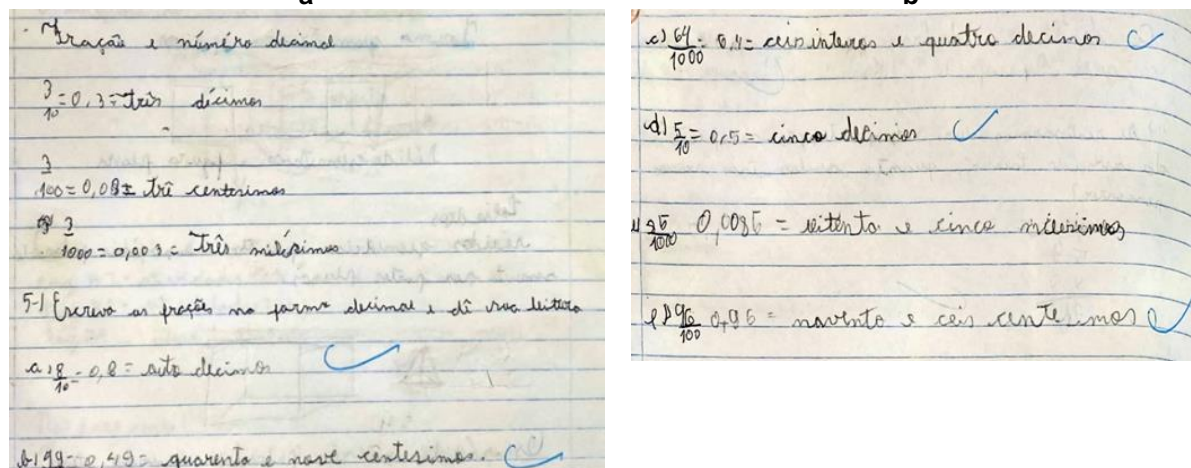 a
Fração e número decimal
3/10 = 0,3 = três décimos
3/100 = 0,03 = trê centesimos
3/1000 = 0,003 = três milésimos
5-) Escreva as frações na forma decimal e dê sua leitura
a) 8/10 = 0,8 = oito decimos
b) 49 = 0,49 = quarenta e nove centesimos.
b
c) 64/1000 = 6,4 = ceis inteiros e quatro decimos
d) 5/10 = 0,5 = cinco decimos
85/1000 0,0085 = oitenta e cinco milesimos
f) 96/100 0,96 = noventa e ceis centesimos